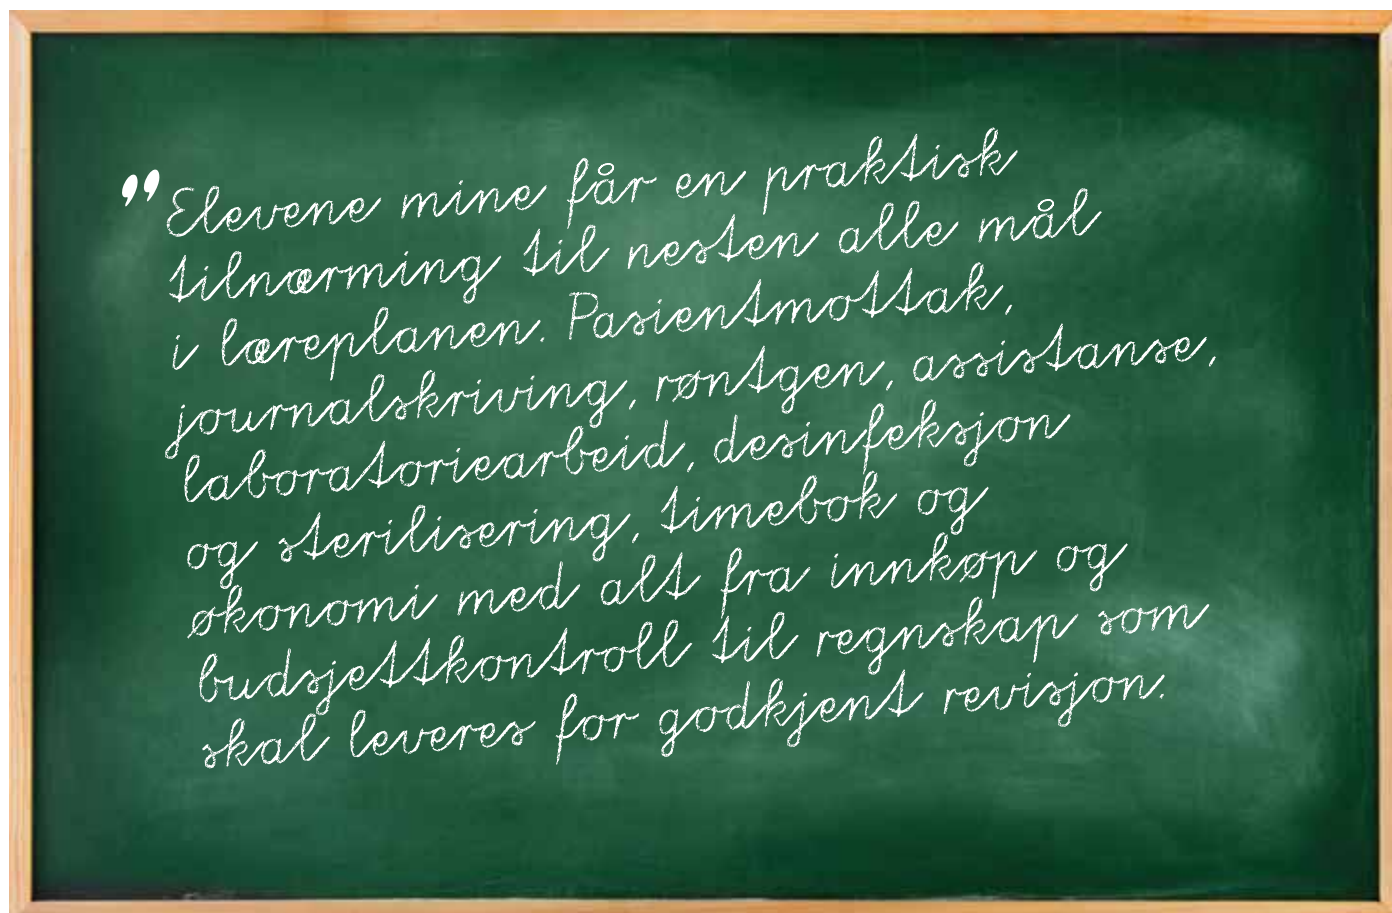 ”Elevene mine får en praktisk
tilnærming til nesten alle mål
i læreplanen. Pasientmottak,
journalskriving, røntgen, assistanse,
laboratoriearbeid, desinfeksjon
og sterilisering, timebok og
økonomi med alt fra innkøp og
budsjettkontroll til regnskap som
skal leveres for godkjent revisjon.